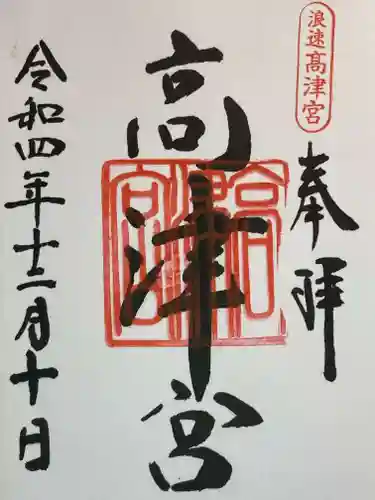 浪速高津宮
奉拝
高津宮
高津宮
令和四年十二月十日